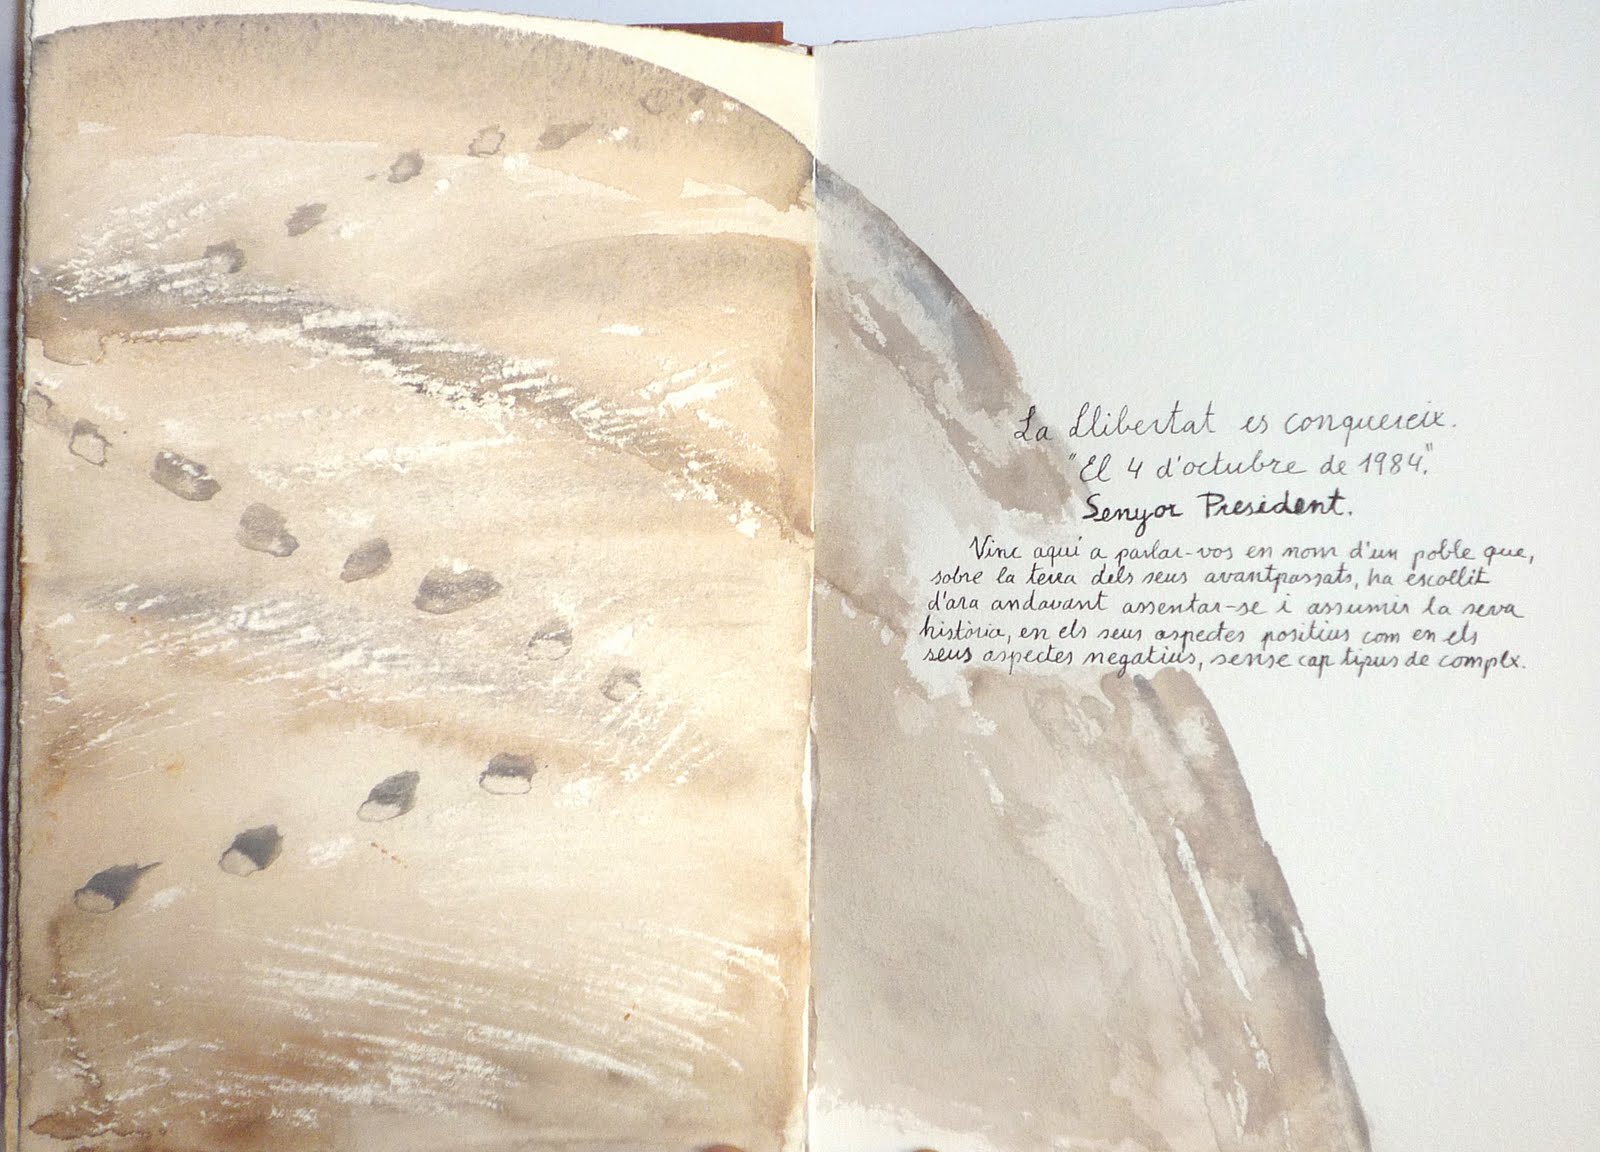 La Llibertat es conquereix.
"El 4 d'octubre de 1984."
Senyor President.
Vinc aquí a parlar-vos en nom d'un poble que,
sobre la terra dels seus avantpassats, ha escollit
d'ara andavant assentar-se i assumir la seva
història, en els seus aspectes positius com en els
seus aspectes negatius, sense cap tipus de complx.